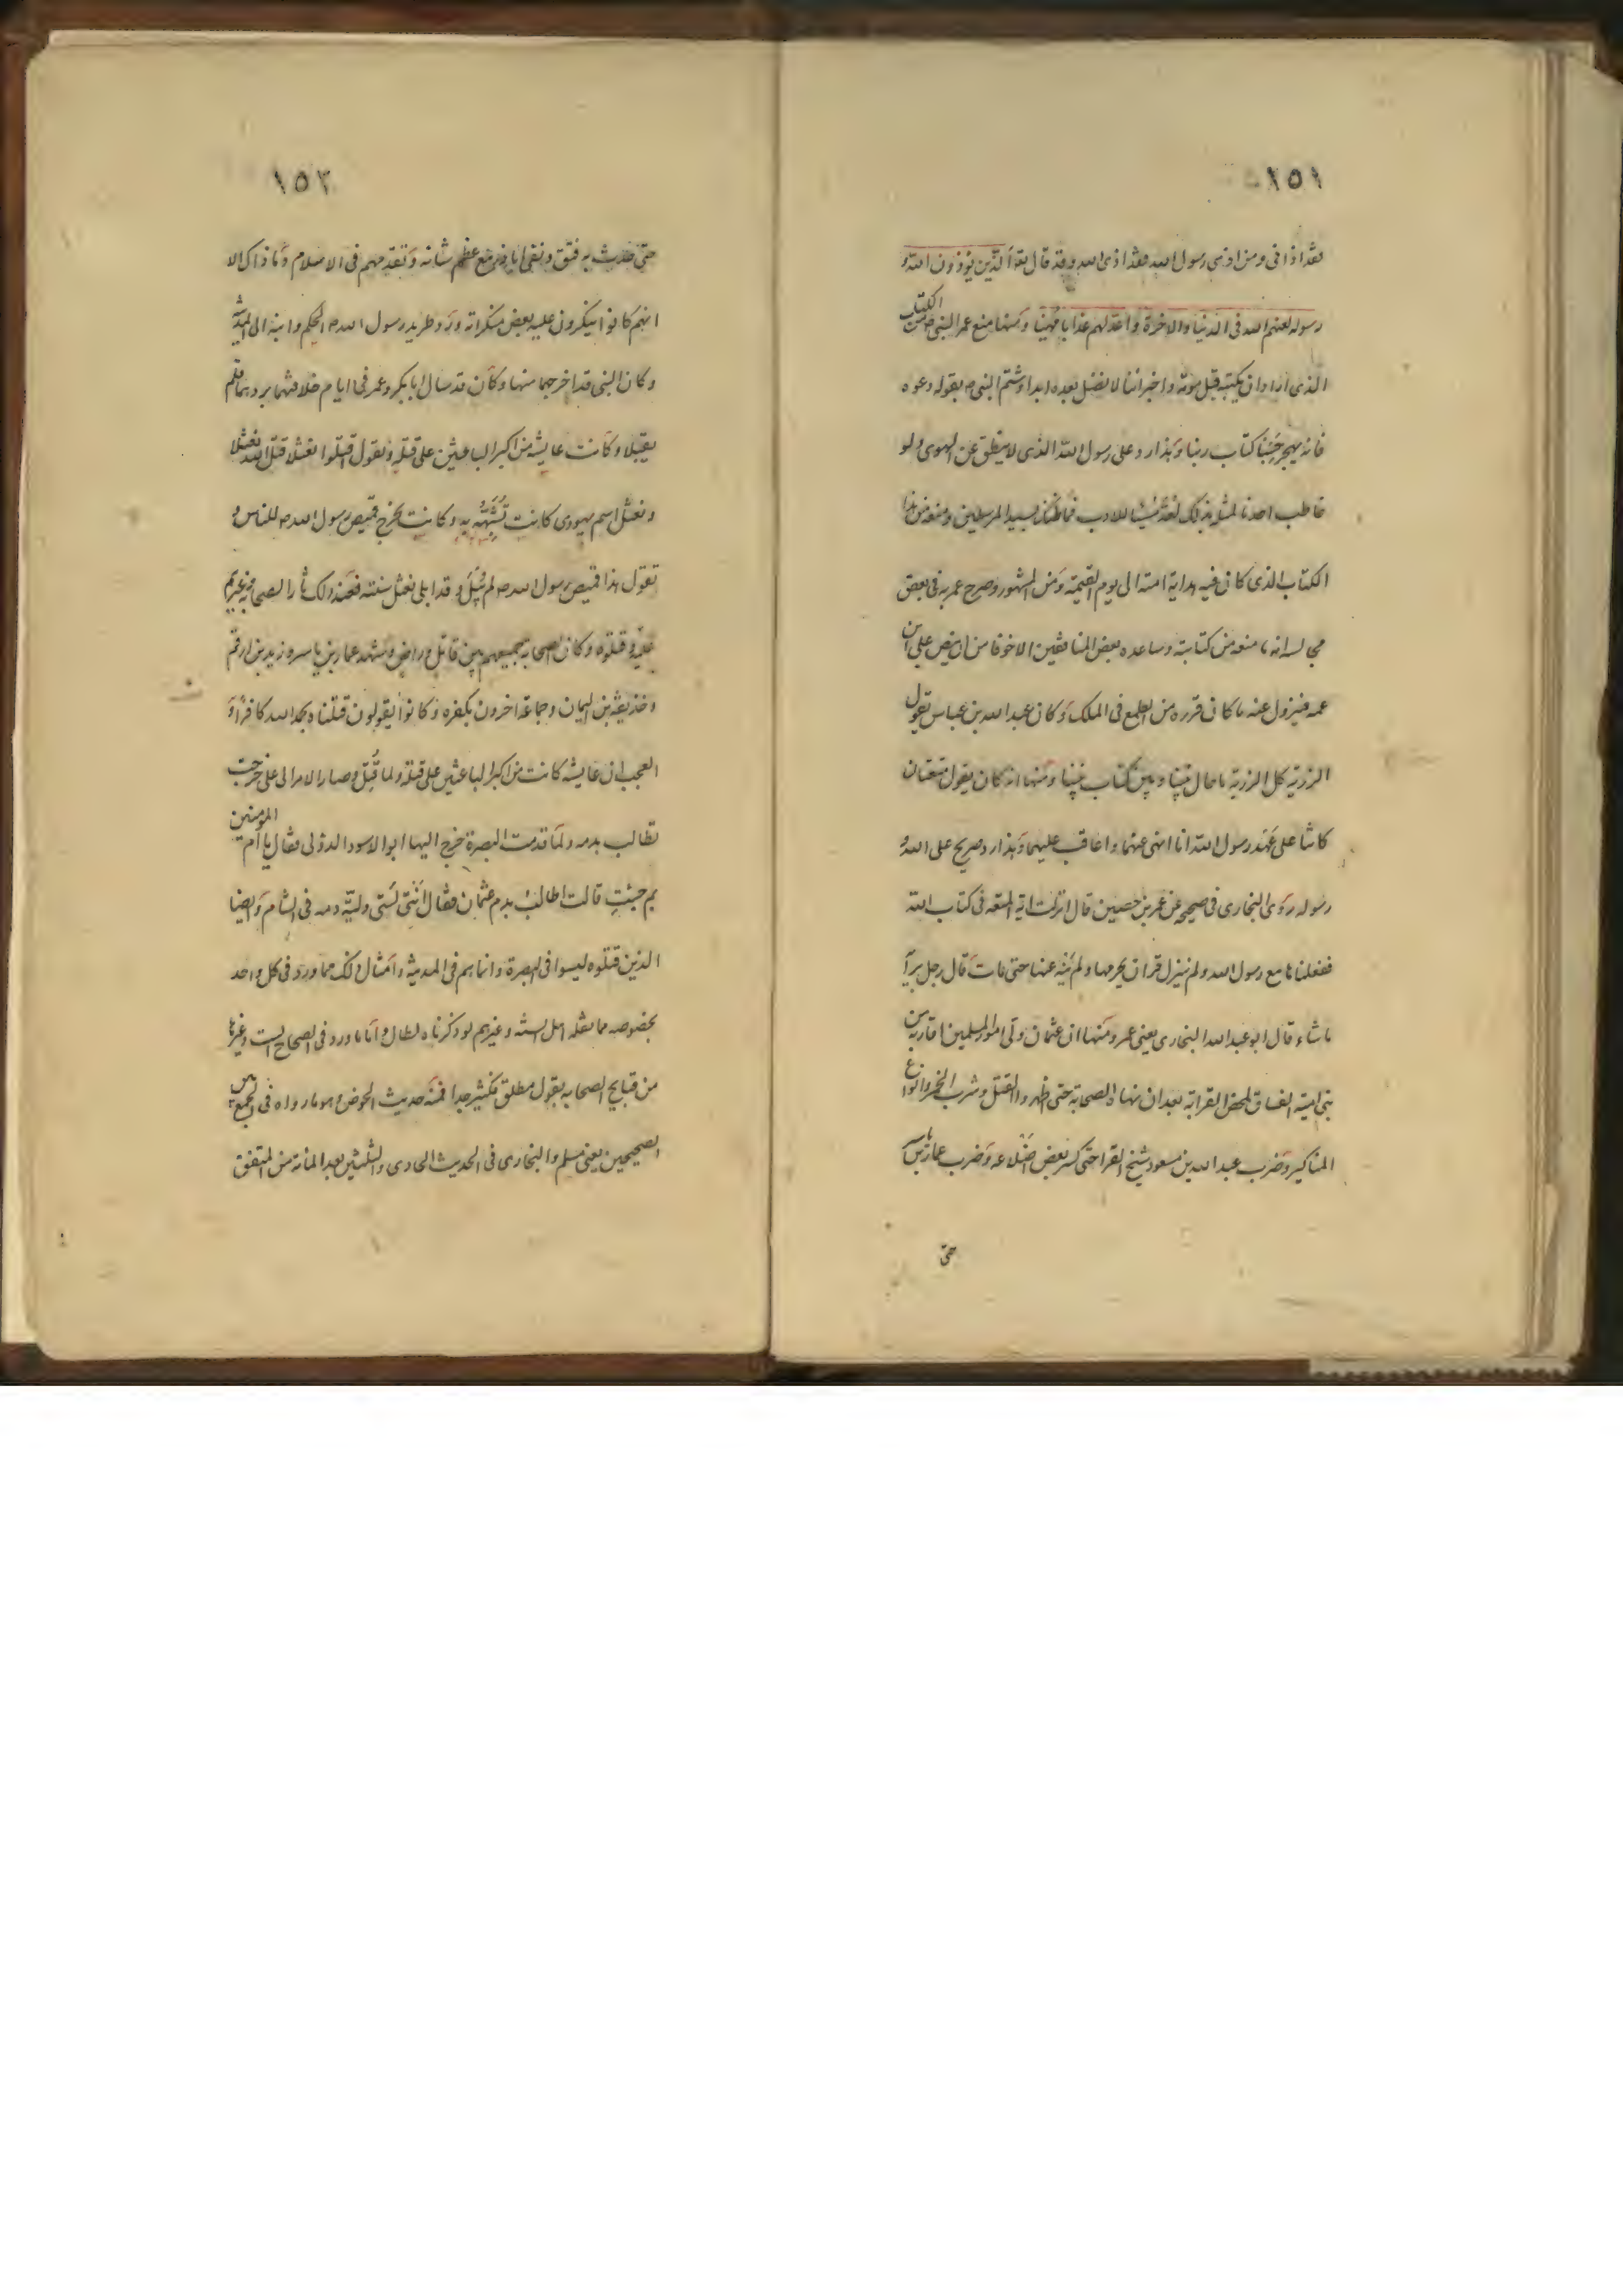 ١٥١
فقد اذانى ومن اذى رسول الله فقد اذى الله وقد قال تع ان الذين يؤذون الله و
رسوله لعنهم الله فى الدنيا والاخرة واعد لهم عذابا مهينا ومنها منع عمر النبى ص من الكتاب
الذى اراد ان يكتبه قبل موته واخبر اننا لا نضل بعده ابدا وشتم النبى ص بقوله دعوه
فانه يهجر حسبنا كتاب ربنا وهذا رد على رسول الله الذى لا ينطق عن الهوى ولو
خاطب احدنا لمثله بذلك لعد مسيئا للادب فما ظنك بسيد المرسلين ومنعه من هذا
الكتاب الذى كان فيه هداية امته الى يوم القيمة ومن المشهور وصرح عمر به فى بعض
مجالسه انه ما منعه من كتابته وساعده بعض المنافقين الا خوفا من ان ينص على ابن
عمه فيزول عنه ما كان قرره من الطمع فى الملك وكان عبد الله بن عباس يقول
الرزية كل الرزية ما حال بيننا وبين كتاب نبينا ومنها انه كان يقول متعتان
كانتا على عهد رسول الله انا انهى عنهما واعاقب عليهما وهذا رد صريح على الله و
رسوله روى البخارى فى صحيحه عن عمر بن حصين قال انزلت اية المتعه فى كتاب الله
ففعلناها مع رسول الله ولم ينزل قران يحرمها ولم ينه عنها حتى مات قال رجل برأيه
ما شاء قال ابو عبد الله البخارى يعنى عمر ومنها ان عثمان ولى امور المسلمين اقاربه من
بنى امية الفساق لمحض القرابه بعد ان نهاه الصحابة حتى اظهروا القتل وشرب الخمر وانواع
المناكير وضرب عبد الله بن مسعود شيخ القراء حتى كسر بعض اضلاعه وضرب عمار بن ياسر
حتى
١٥٢
حتى حدث به فتق ونفى اباذر مع عظم شانه وتقدمهم فى الاسلام وما ذاك الا
انهم كانوا ينكرون عليه بعض منكراته ورد طريد رسول الله ص الحكم وابنه الى المدينة
وكان النبى قد اخرجهما منها وكان قد سال ابابكر وعمر فى ايام خلافتهما بردهما فلم
يقبلا وكانت عايشه من اكبر الباعثين على قتله وتقول اقتلوا نعثلا قتل الله نعثلا
ونعثل اسم يهودى كانت تشبهه به وكانت تخرج قميص رسول الله ص للناس و
تقول هذا قميص رسول الله ص لم يبل وقد ابلى نعثل سنته فعند ذلك ثار الصحابه وغيرهم
عليه وقتلوه وكان الصحابه جميعهم بين قاتل وراض وشهد عمار بن ياسر وزيد بن ارقم
وحذيفه بن اليمان وجماعة اخرون بكفره وكانوا يقولون قتلناه بحمد الله كافرا و
العجب ان عايشه كانت من اكبر الباعثين على قتله ولما قتل وصار الامر الى على خرجت
تطالب بدمه ولما قدمت البصرة خرج اليها ابو الاسود الدؤلى فقال يا ام المؤمنين
بم جئت قالت اطالب بدم عثمان فقال انتى لستى ولية دمه فى الشام وايضا
الذين قتلوه ليسوا فى البصرة وانما هم فى المدينة وامثال ذلك مما ورد فى كل واحد
بخصوصه مما نقله اهل السنة وغيرهم لو ذكرناه لطال واما ما ورد فى الصحاح الست وغيرها
من قبايح الصحابه بقول مطلق فكثير جدا فمنه حديث الحوض وهو ما رواه فى الجمع بين
الصحيحين يعنى مسلم والبخارى فى الحديث الحادى والثلثين بعد المائة من المتفق